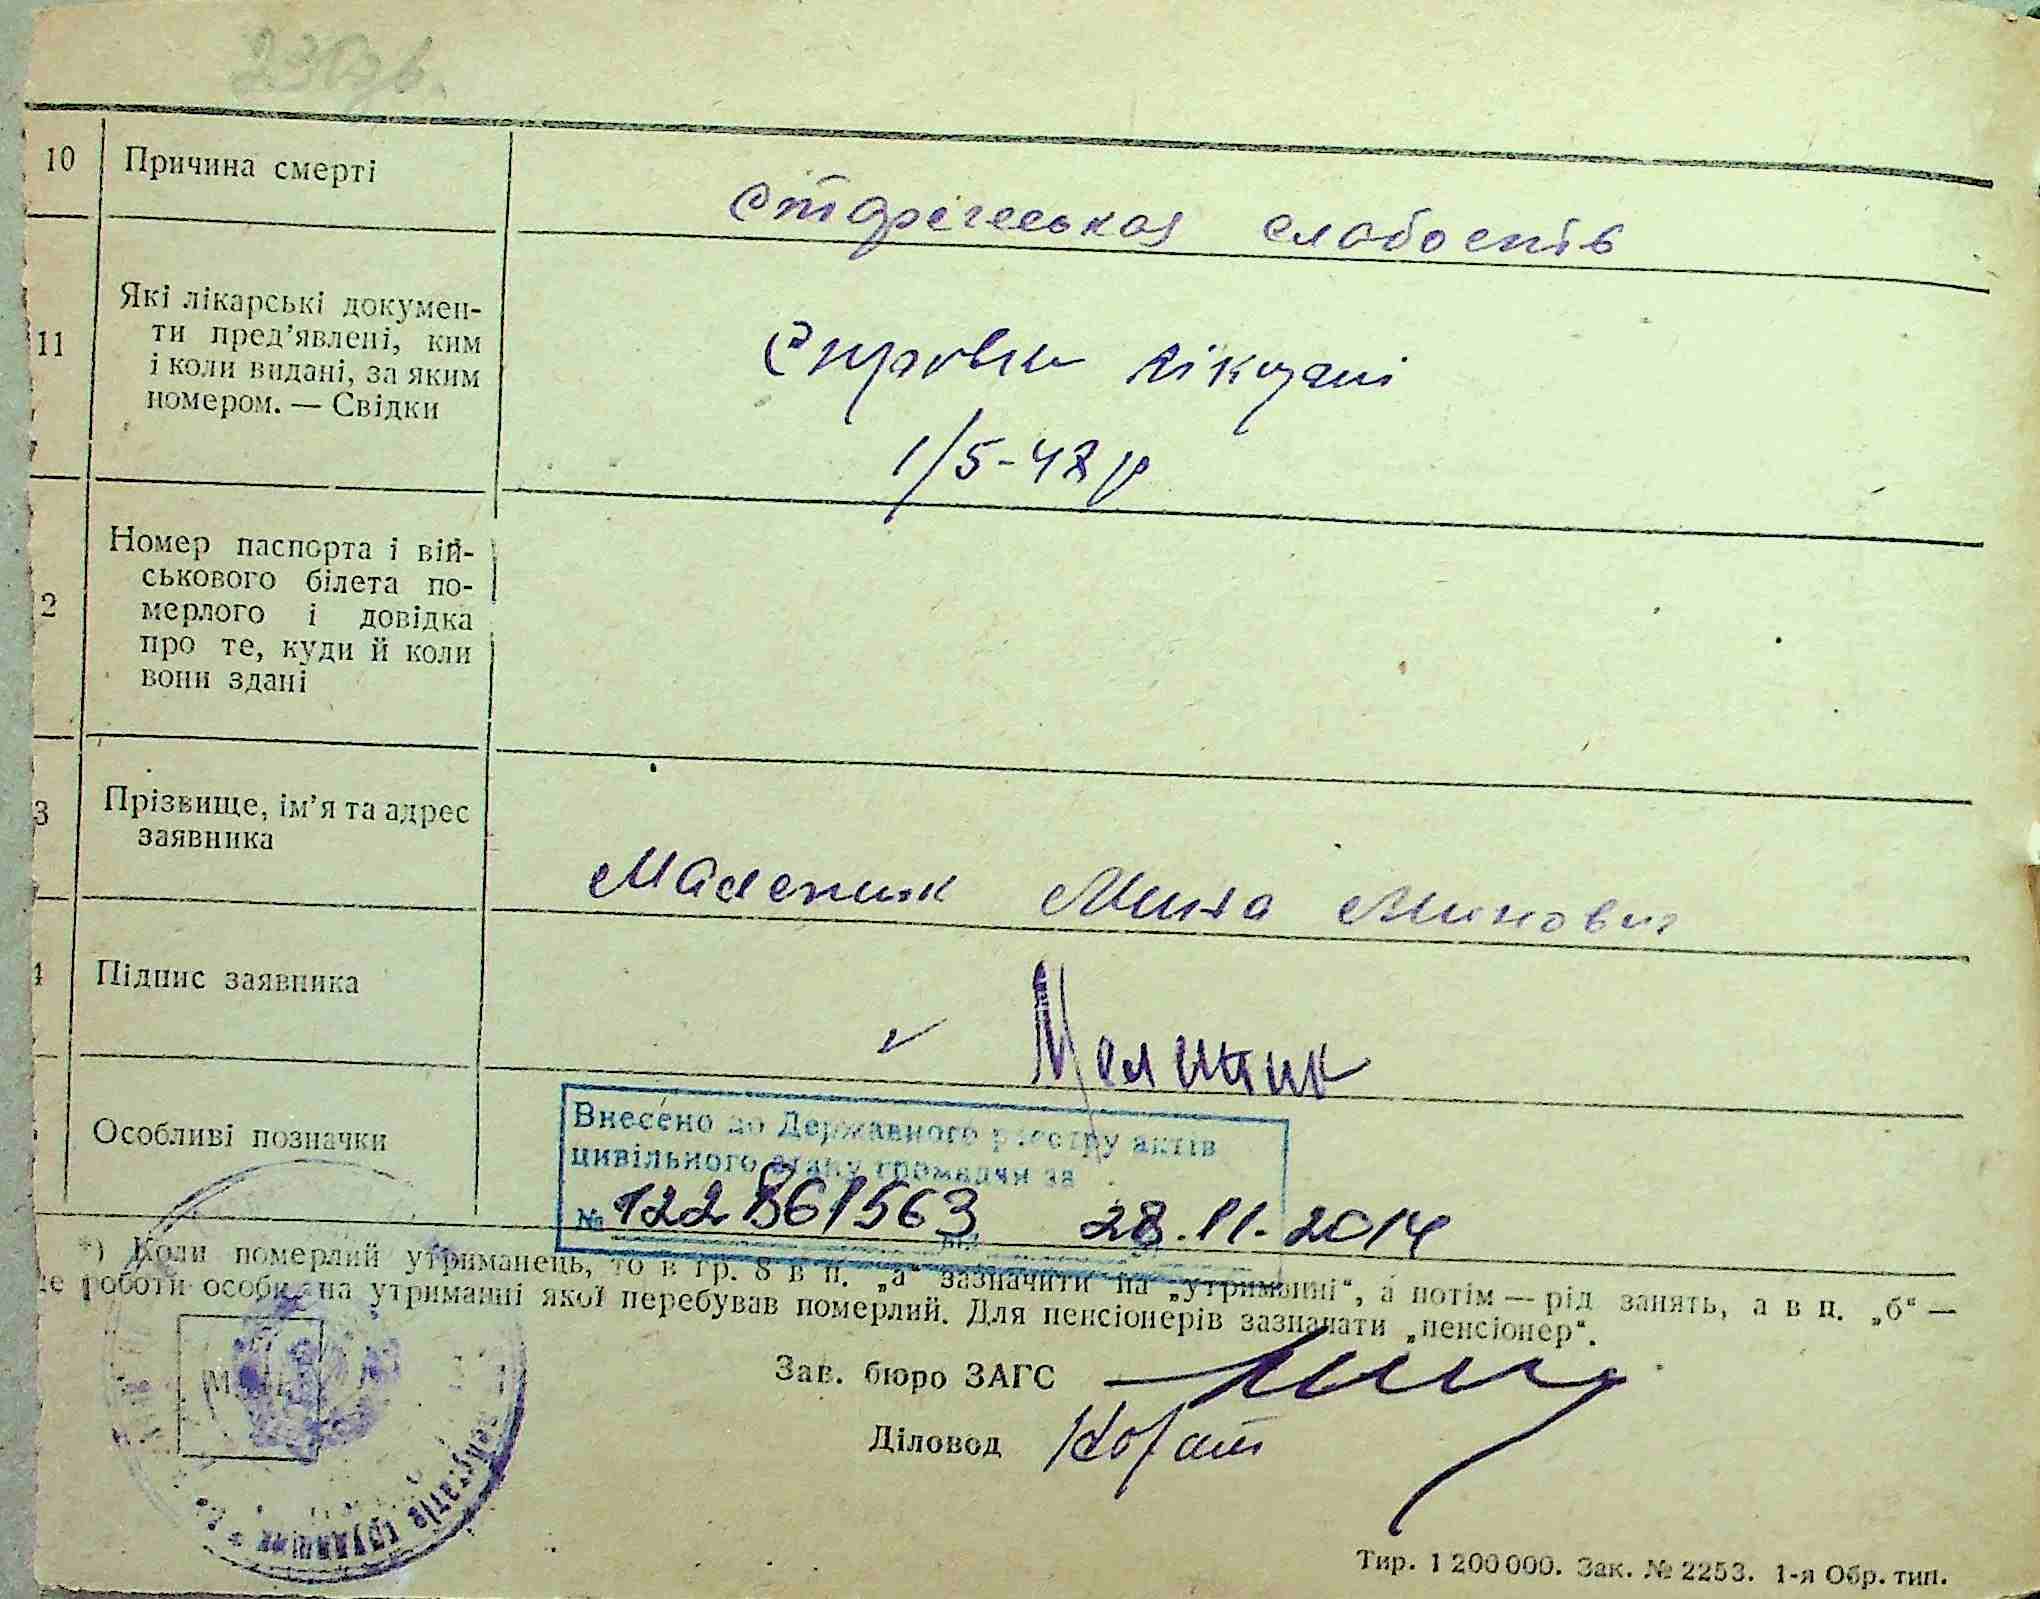 10 Причина смерті
старческая слабость
11 Які лікарські докумен-
ти пред’явлені, ким
і коли видані, за яким
номером. — Свідки
Справки
1/5-48 р
2 Номер паспорта і вій-
ськового білета по-
мерлого і довідка
про те, куди й коли
вони здані
3 Прізвище, ім’я та адрес
заявника
Мина Минович
Підпис заявника
Особливі позначки
Внесено до Державного реєстру актів
цивільного стану громадян за
№ 122861563 28.11.2014
*) Коли померлий утриманець, то в гр. 8 в п. „а“ зазначити на „утриманні“, а потім — рід занять, а в п. „б“ —
роботи особи, на утриманні якої перебував померлий. Для пенсіонерів зазначати „пенсіонер“.
Зав. бюро ЗАГС
Діловод
депутатів трудящих
Тир. 1 200 000. Зак. № 2253. 1-я Обр. тип.